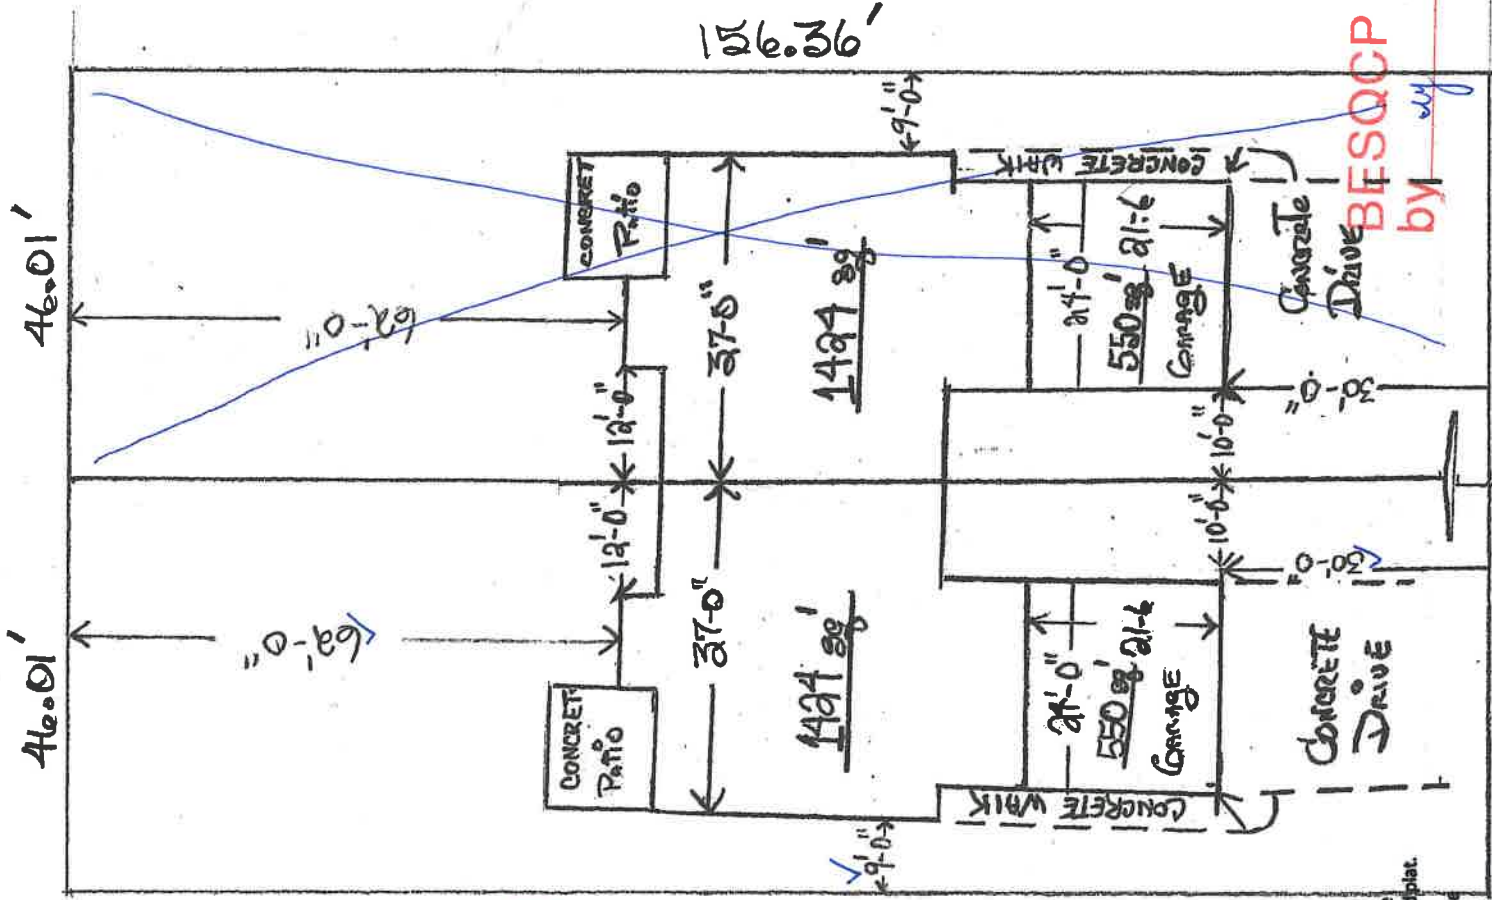 156.36'
46.01'
46.01'
9'-0"
CONCRET
Patio
62'-0"
CONCRETE WALK
37'-0"
1424 sq'
24'-0"
21-6
550 sq'
GARAGE
CONCRETE
DRIVE
BESQCP
by
12'-0"
10'-0"
30'-0"
12'-0"
10'-0"
30'-0"
62'-0"
37'-0"
1424 sq'
24'-0"
21-6
550 sq'
GARAGE
CONCRETE
DRIVE
CONCRET
Patio
CONCRETE WALK
9'-0"
plat.